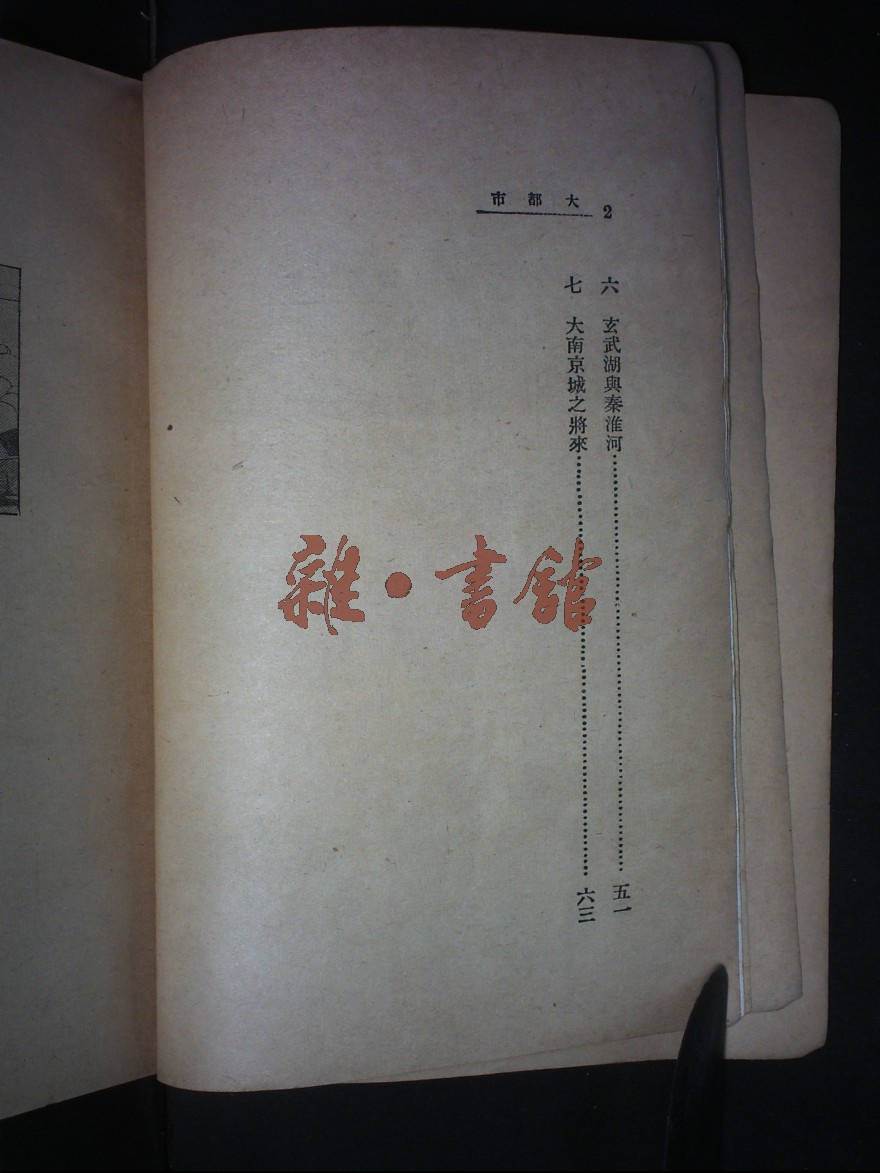 大都市 2
六 玄武湖與秦淮河……五一
七 大南京城之將來……六三
雜·書館